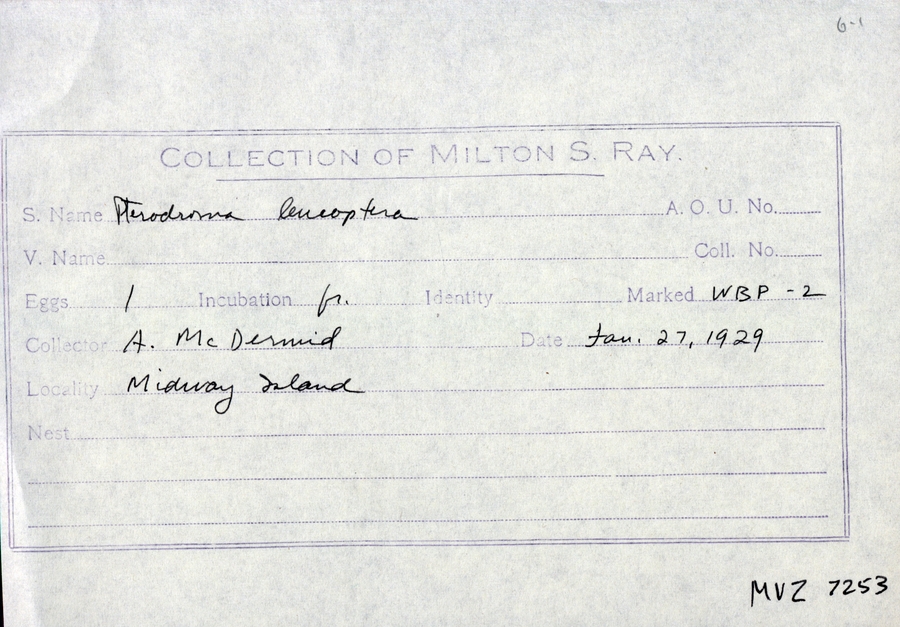 6-1
COLLECTION OF MILTON S. RAY.
S. Name Pterodroma leucoptera A. O. U. No.
V. Name Coll. No.
Eggs 1 Incubation fr. Identity Marked WBP - 2
Collector A. McDermid Date Jan. 27, 1929
Locality Midway Island
Nest
MVZ 7253